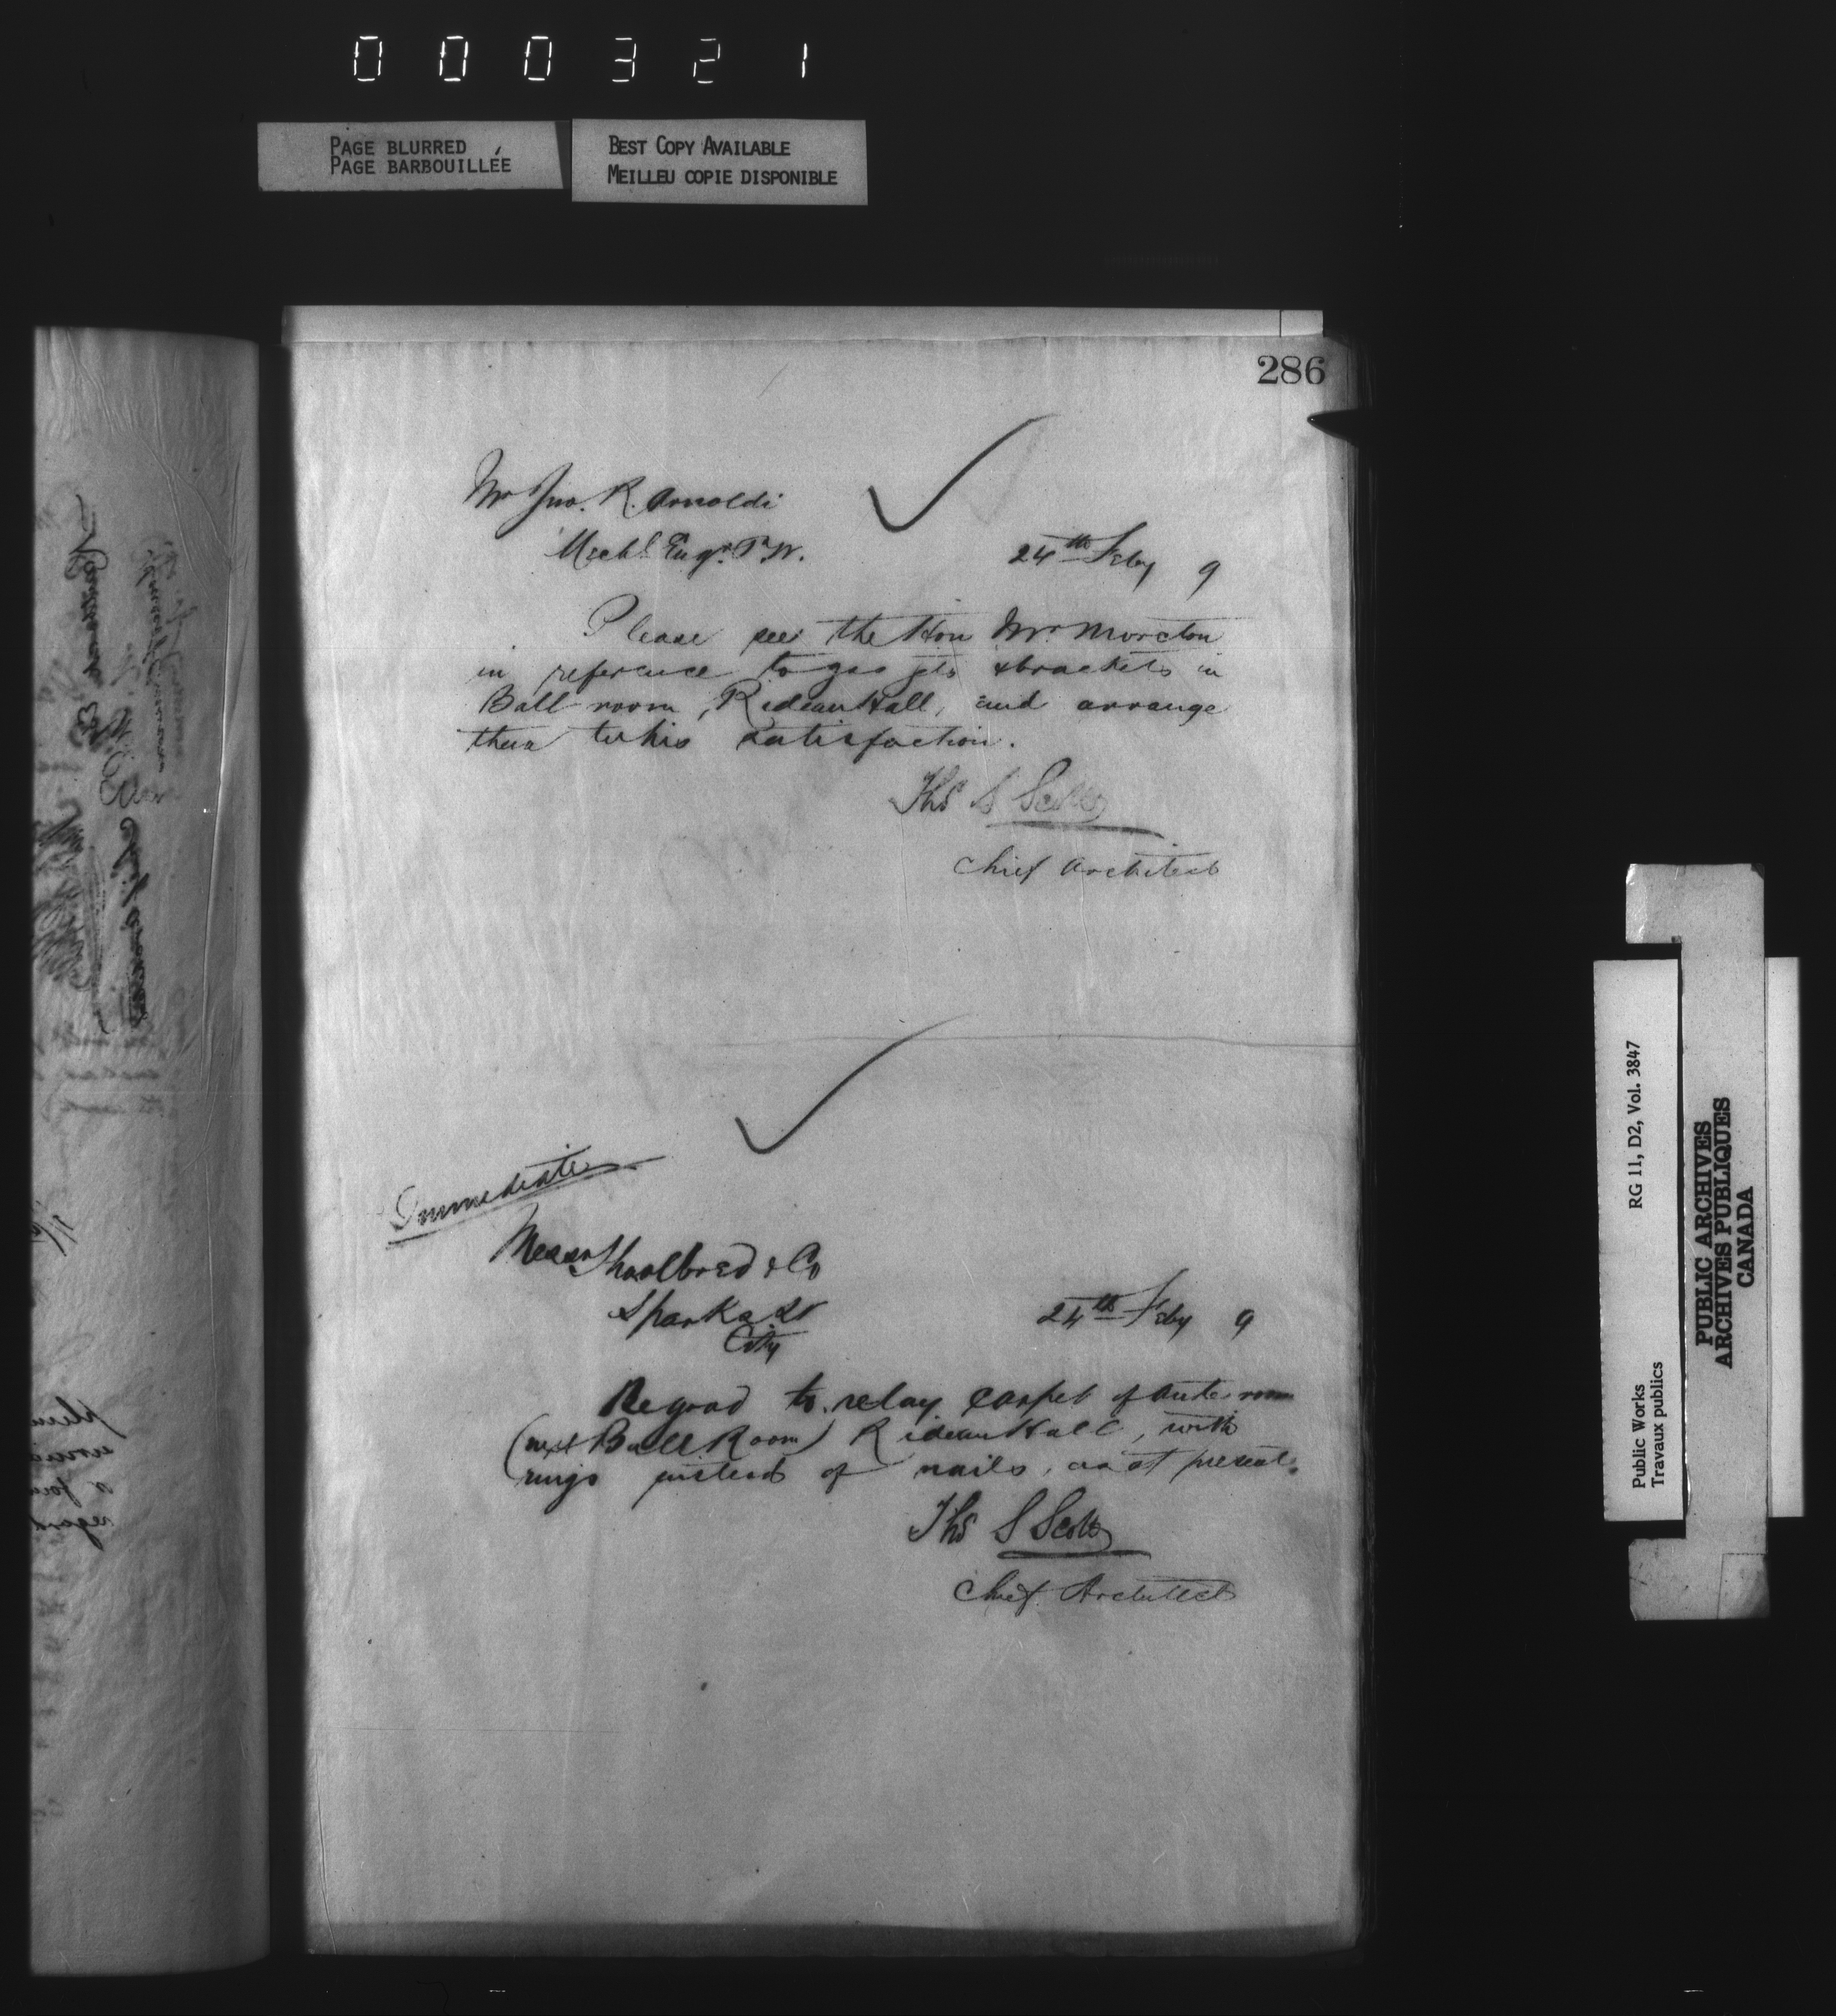 000321
PAGE BLURRED
PAGE BARBOUILLÉE
BEST COPY AVAILABLE
MEILLEU COPIE DISPONIBLE
286
Mr Jno. R. Arnoldi
Mechl Engr. P.W.
24th Feby 9
Please see the Hon Mr. Moreton
in reference to gas jets & brackets in
Ball room, Rideau Hall, and arrange
them to his satisfaction.
Ths S Scott
Chief Architect
Immediate
Messrs Shoolbred & Co
Sparks St
City
24th Feby 9
Be good to relay carpet of Ante room
(next Ball Room) Rideau Hall, with
rings instead of nails, as at present.
Ths S Scott
Chief Architect
Public Works
Travaux publics
RG 11, D2, Vol. 3847
PUBLIC ARCHIVES
ARCHIVES PUBLIQUES
CANADA